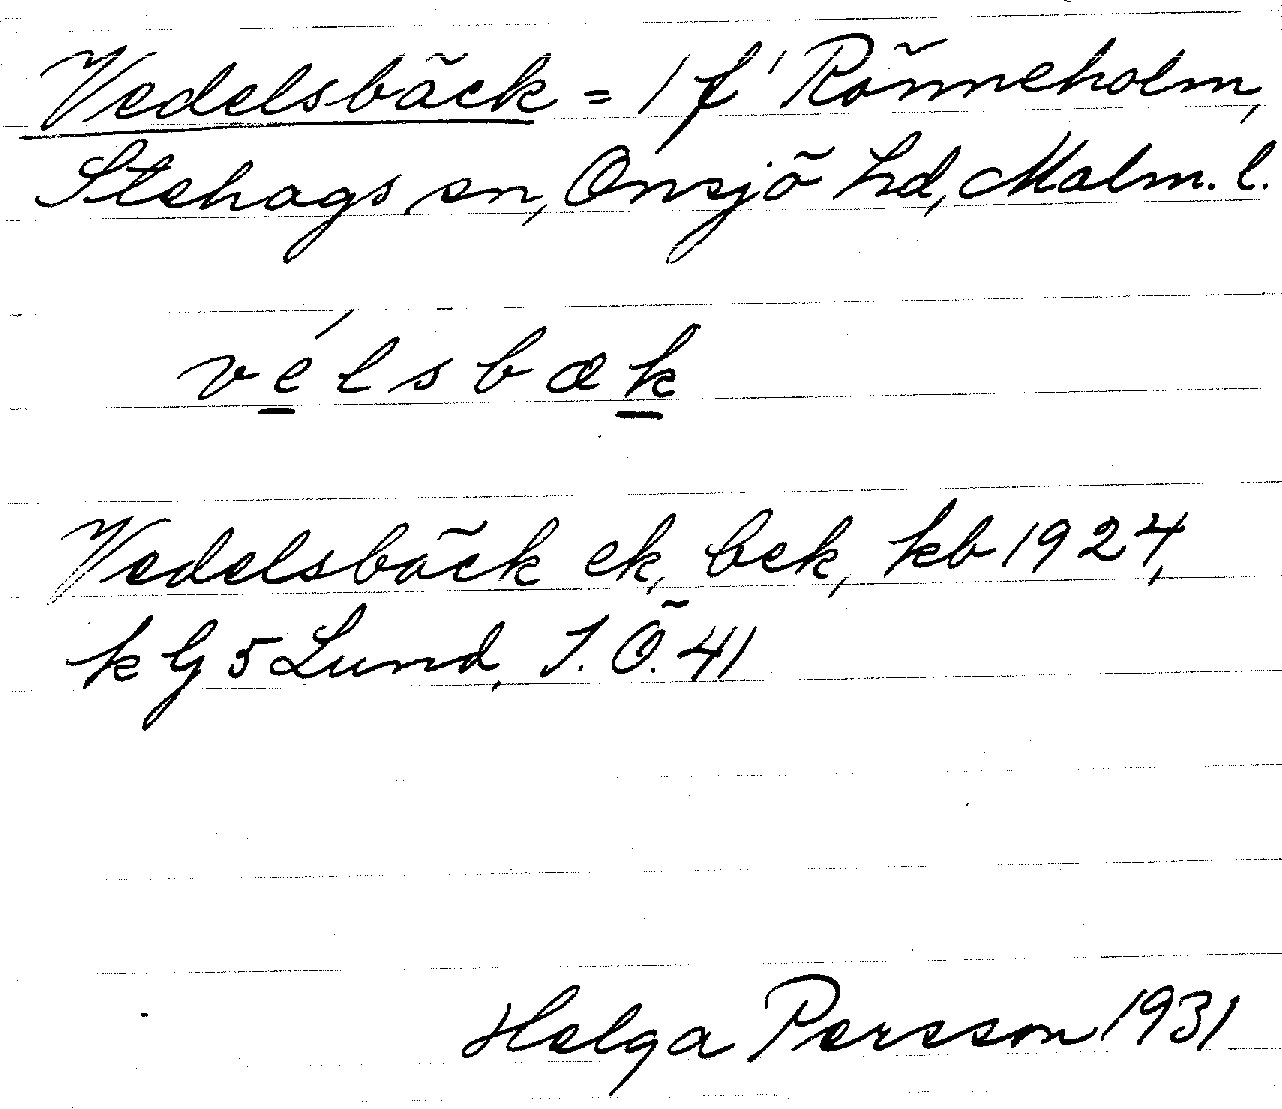 Vedelsbäck = 1 f' Rönneholm,
Stehags sn, Onsjö hd, Malm. l.
vélsbæk
Vedelsbäck ek, bek, kb 1924,
k G 5 Lund, J. Ö. 41
Helga Persson 1931